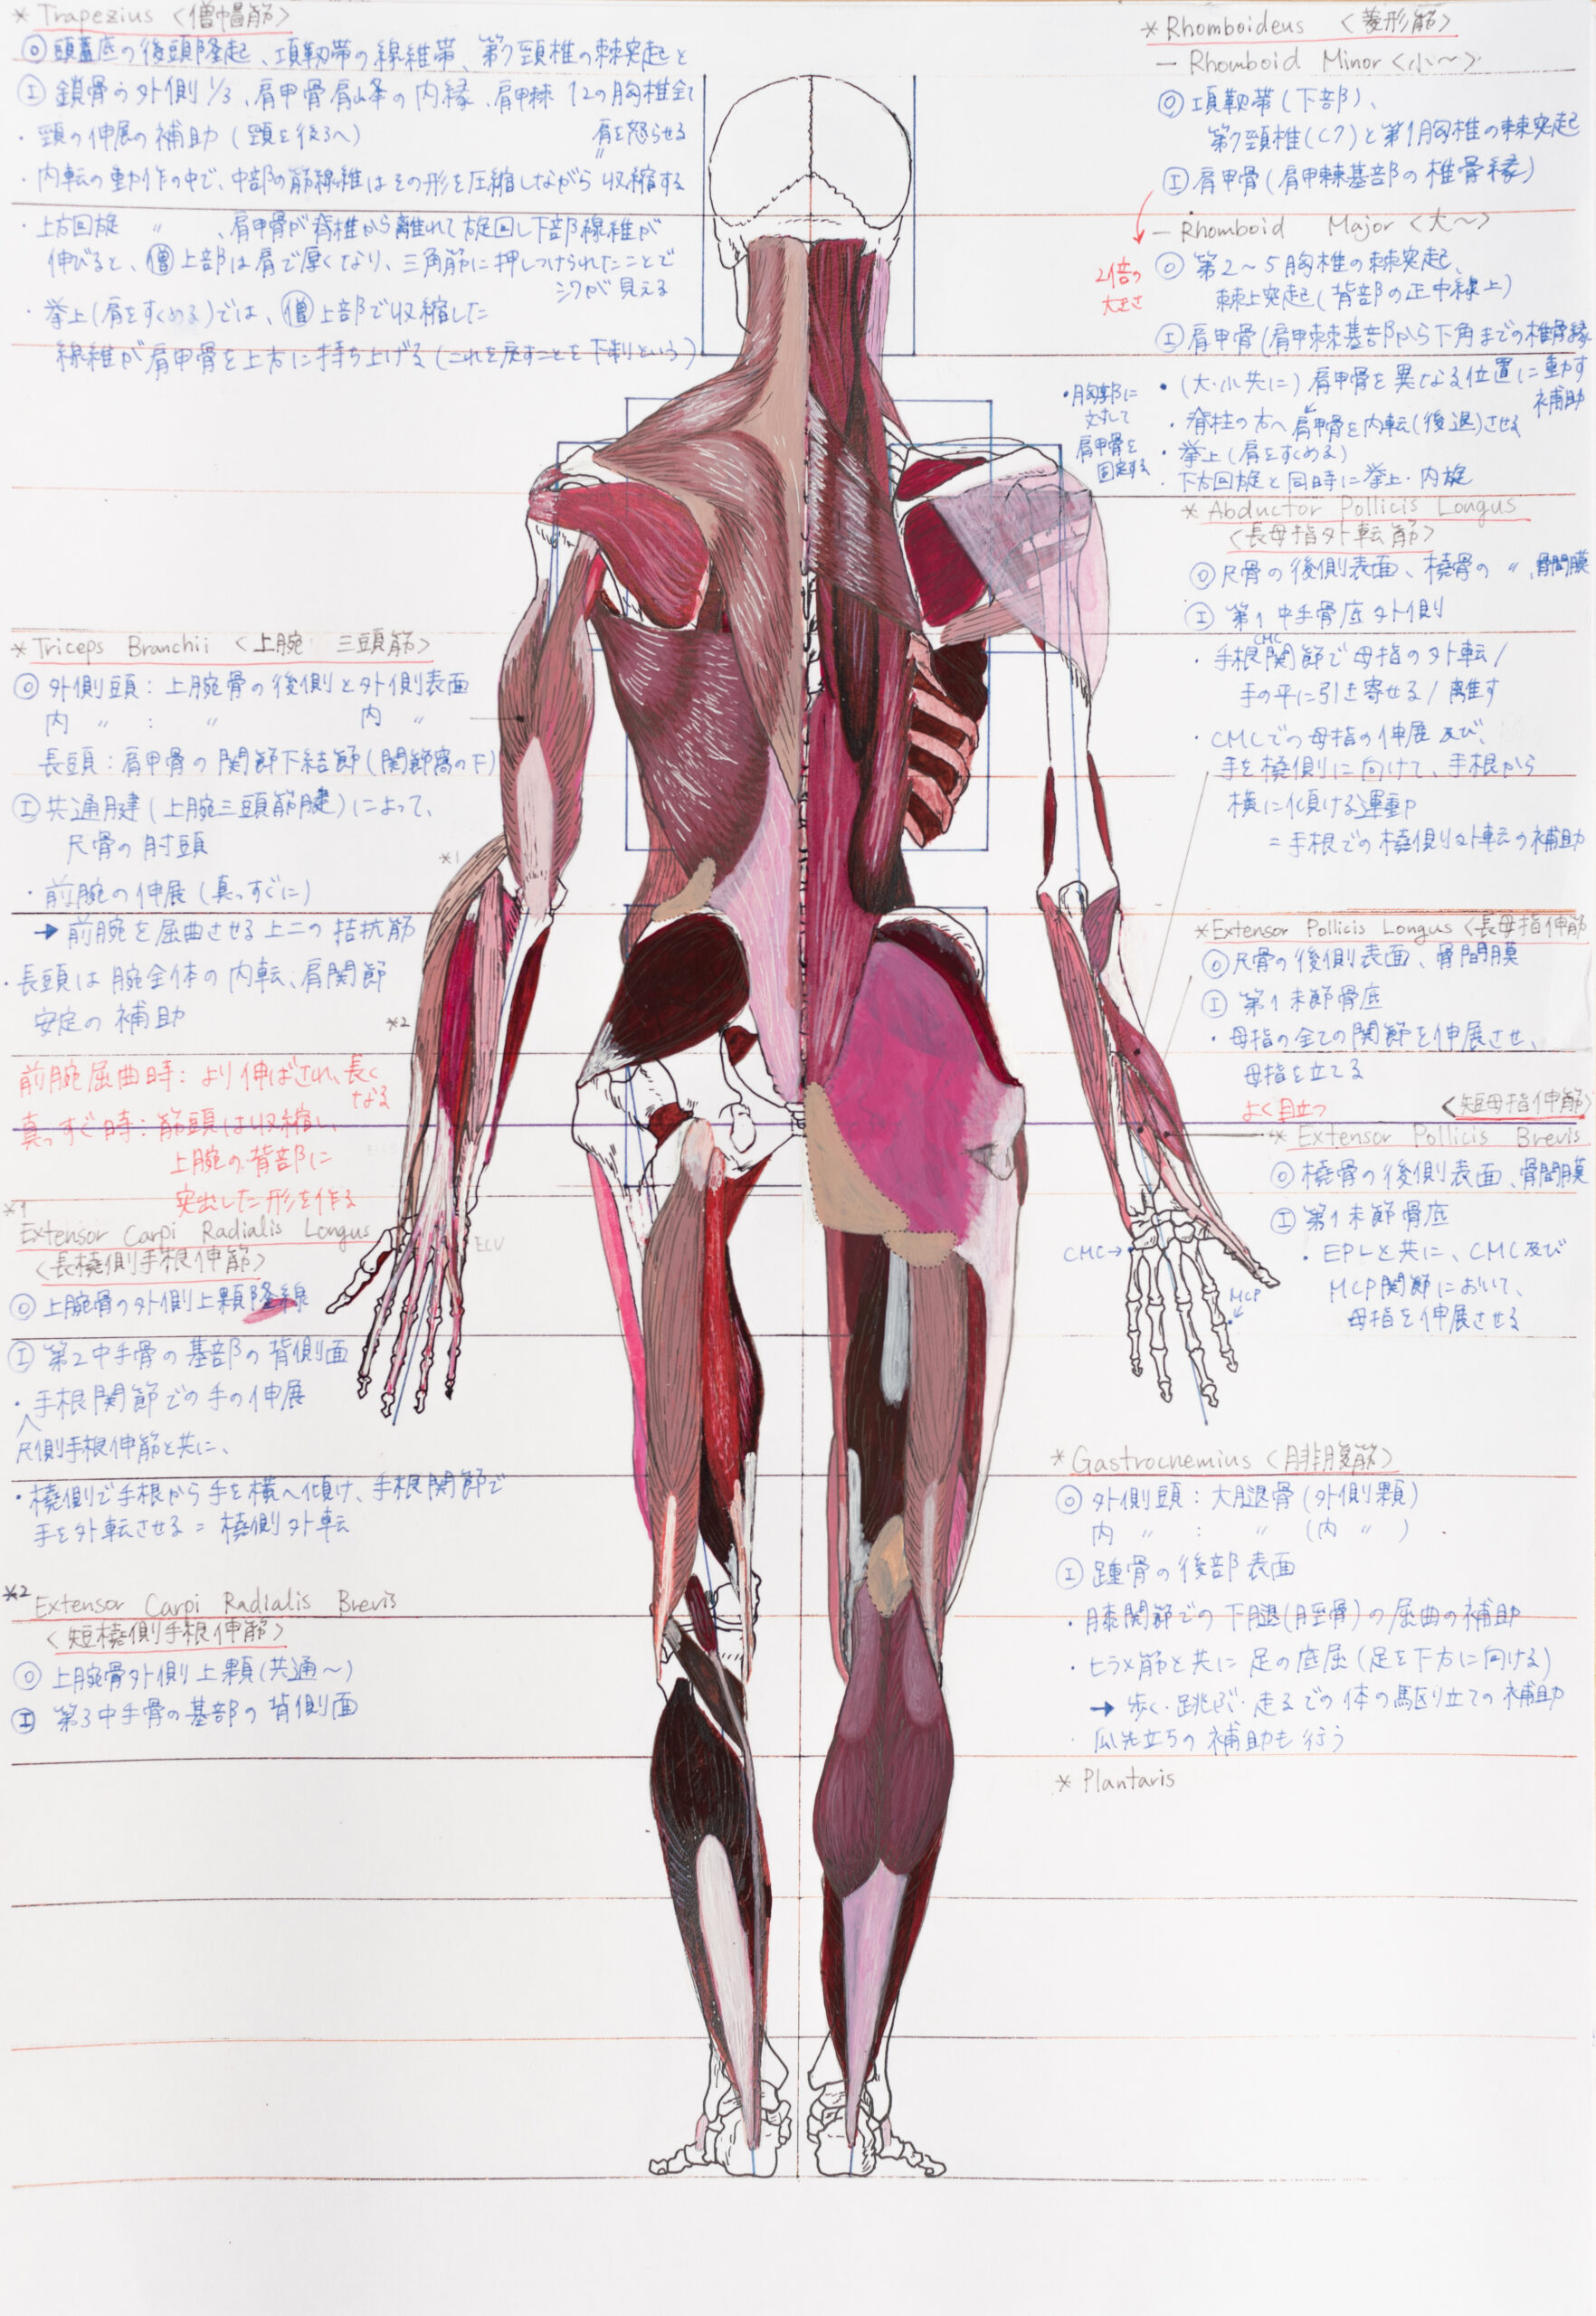 * Trapezius <僧帽筋>
Ⓞ 頭蓋底の後頭隆起、項靭帯の線維帯、第7頸椎の棘突起と
Ⓘ 鎖骨の外側 1/3、肩甲骨肩峰の内縁、肩甲棘 12の胸椎全て
・頸の伸展の補助 (頸を後ろへ)
肩を怒らせる
・内転の動作の中で、中部の筋線維はその形を圧縮しながら収縮する
・上方回旋 〃 、肩甲骨が脊椎から離れて旋回し下部線維が
伸びると、僧上部は肩で厚くなり、三角筋に押しつけられたことで
シワが見える
・挙上(肩をすくめる)では、僧上部で収縮した
線維が肩甲骨を上方に持ち上げる (これを戻すことを下制という)
* Triceps Branchii <上腕 三頭筋>
Ⓞ 外側頭: 上腕骨の後側と外側表面
内 〃 : 〃 内 〃
長頭: 肩甲骨の関節下結節(関節窩の下)
Ⓘ 共通腱(上腕三頭筋腱)によって、
尺骨の肘頭
・前腕の伸展 (真っすぐに)
→ 前腕を屈曲させる上二の拮抗筋
・長頭は腕全体の内転、肩関節
安定の補助
前腕屈曲時: より伸ばされ、長く
なる
真っすぐ時: 筋頭は収縮し、
上腕の背部に
突出した形を作る
*1
*2
*1
Extensor Carpi Radialis Longus
<長橈側手根伸筋>
ECU
Ⓞ 上腕骨の外側上顆隆線
Ⓘ 第2中手骨の基部の背側面
・手根関節での手の伸展
^
尺側手根伸筋と共に、
・橈側で手根から手を横へ傾け、手根関節で
手を外転させる = 橈側外転
*2 Extensor Carpi Radialis Brevis
<短橈側手根伸筋>
Ⓞ 上腕骨外側上顆(共通〜)
Ⓘ 第3中手骨の基部の背側面
* Rhomboideus <菱形筋>
— Rhomboid Minor <小〜>
Ⓞ 項靭帯 (下部)、
第7頸椎(C7)と第1胸椎の棘突起
Ⓘ 肩甲骨 (肩甲棘基部の椎骨縁)
— Rhomboid Major <大〜>
2倍の
大きさ
Ⓞ 第2〜5胸椎の棘突起、
棘上突起(背部の正中線上)
Ⓘ 肩甲骨(肩甲棘基部から下角までの椎骨縁
・(大・小共に) 肩甲骨を異なる位置に動す
補助
・胸郭に
対して
肩甲骨を
固定する
・脊柱の方へ肩甲骨を内転(後退)させる
・挙上 (肩をすくめる)
・下方回旋と同時に挙上・内旋
* Abductor Pollicis Longus
<長母指外転筋>
Ⓞ 尺骨の後側表面、橈骨の 〃 、骨間膜
Ⓘ 第1中手骨底外側
・手根関節で母指の外転/
CMC
手の平に引き寄せる/離す
・CMCでの母指の伸展及び、
手を橈側に向けて、手根から
横に傾ける運動
= 手根での橈側外転の補助
* Extensor Pollicis Longus <長母指伸筋
Ⓞ 尺骨の後側表面、骨間膜
Ⓘ 第1末節骨底
・母指の全ての関節を伸展させ、
母指を立てる
よく目立つ
<短母指伸筋>
* Extensor Pollicis Brevis
Ⓞ 橈骨の後側表面、骨間膜
Ⓘ 第1末節骨底
・EPLと共に、CMC及び
MCP関節において、
母指を伸展させる
CMC→
MCP
* Gastrocnemius <腓腹筋>
Ⓞ 外側頭: 大腿骨 (外側顆)
内 〃 : 〃 (内 〃 )
Ⓘ 踵骨の後部表面
・膝関節での下腿(脛骨)の屈曲の補助
・ヒラメ筋と共に足の底屈 (足を下方に向ける)
→ 歩く・跳ぶ・走るでの体の駆り立ての補助
・爪先立ちの補助も行う
* Plantaris